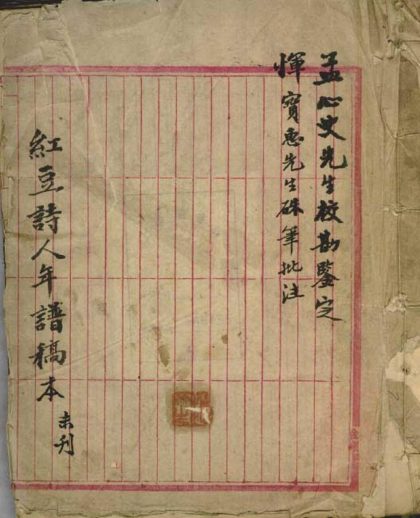 孟心史先生校勘鑒定
惲寳惠先生硃筆批注
紅豆詩人年譜稿本 未刊